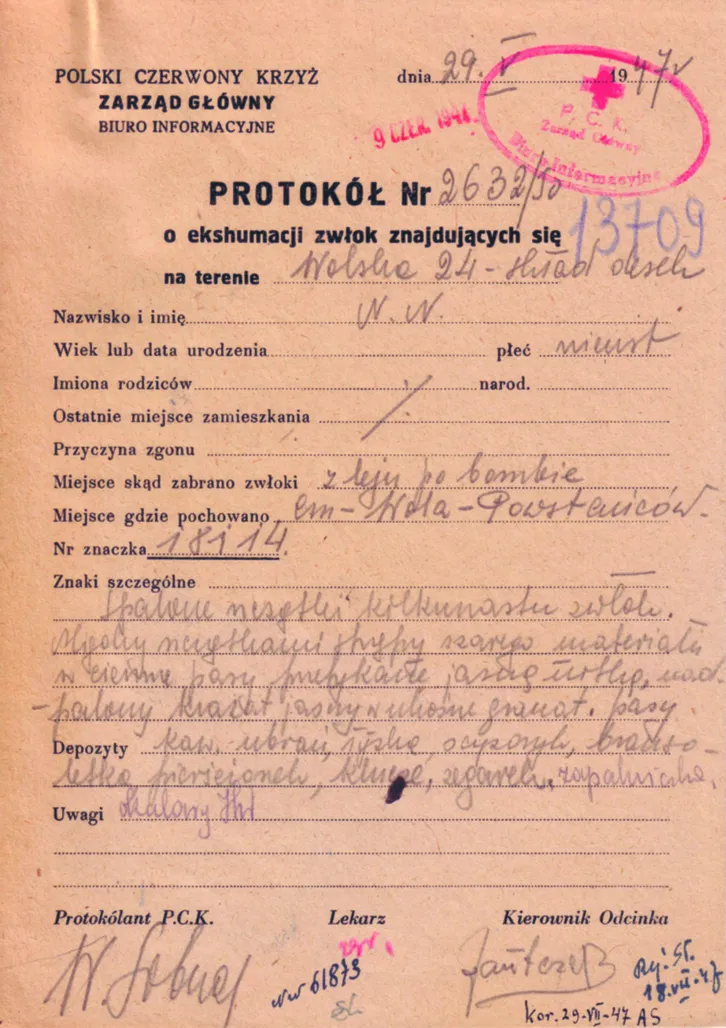 POLSKI CZERWONY KRZYŻ
ZARZĄD GŁÓWNY
BIURO INFORMACYJNE
dnia 29. V 1947 r
9 CZER. 194
P. C. K.
Zarząd Główny
Biuro Informacyjne
PROTOKÓŁ Nr 2632/50
13709
o ekshumacji zwłok znajdujących się
na terenie Wolska 24 - skład desek
Nazwisko i imię N. N.
Wiek lub data urodzenia płeć nieust
Imiona rodziców narod.
Ostatnie miejsce zamieszkania
Przyczyna zgonu
Miejsce skąd zabrano zwłoki z leju po bombie
Miejsce gdzie pochowano cm-Wola-Powstańców.
Nr znaczka 18114.
Znaki szczególne
Spalone szczątki kilkunastu zwłok.
Między szczątkami strzępy szarego materiału
w ciemne pasy, przetykane jasną nitką, nad-
palony krawat jasny w ukośne granat. pasy.
Depozyty kaw. ubrań, łyżka, scyzoryk, branso-
letka, pierścionek, klucze, zegarek, zapalniczka,
Uwagi
Protokólant P.C.K. Lekarz Kierownik Odcinka
nw 61873
18.VII-47
kor. 29-VII-47 AS